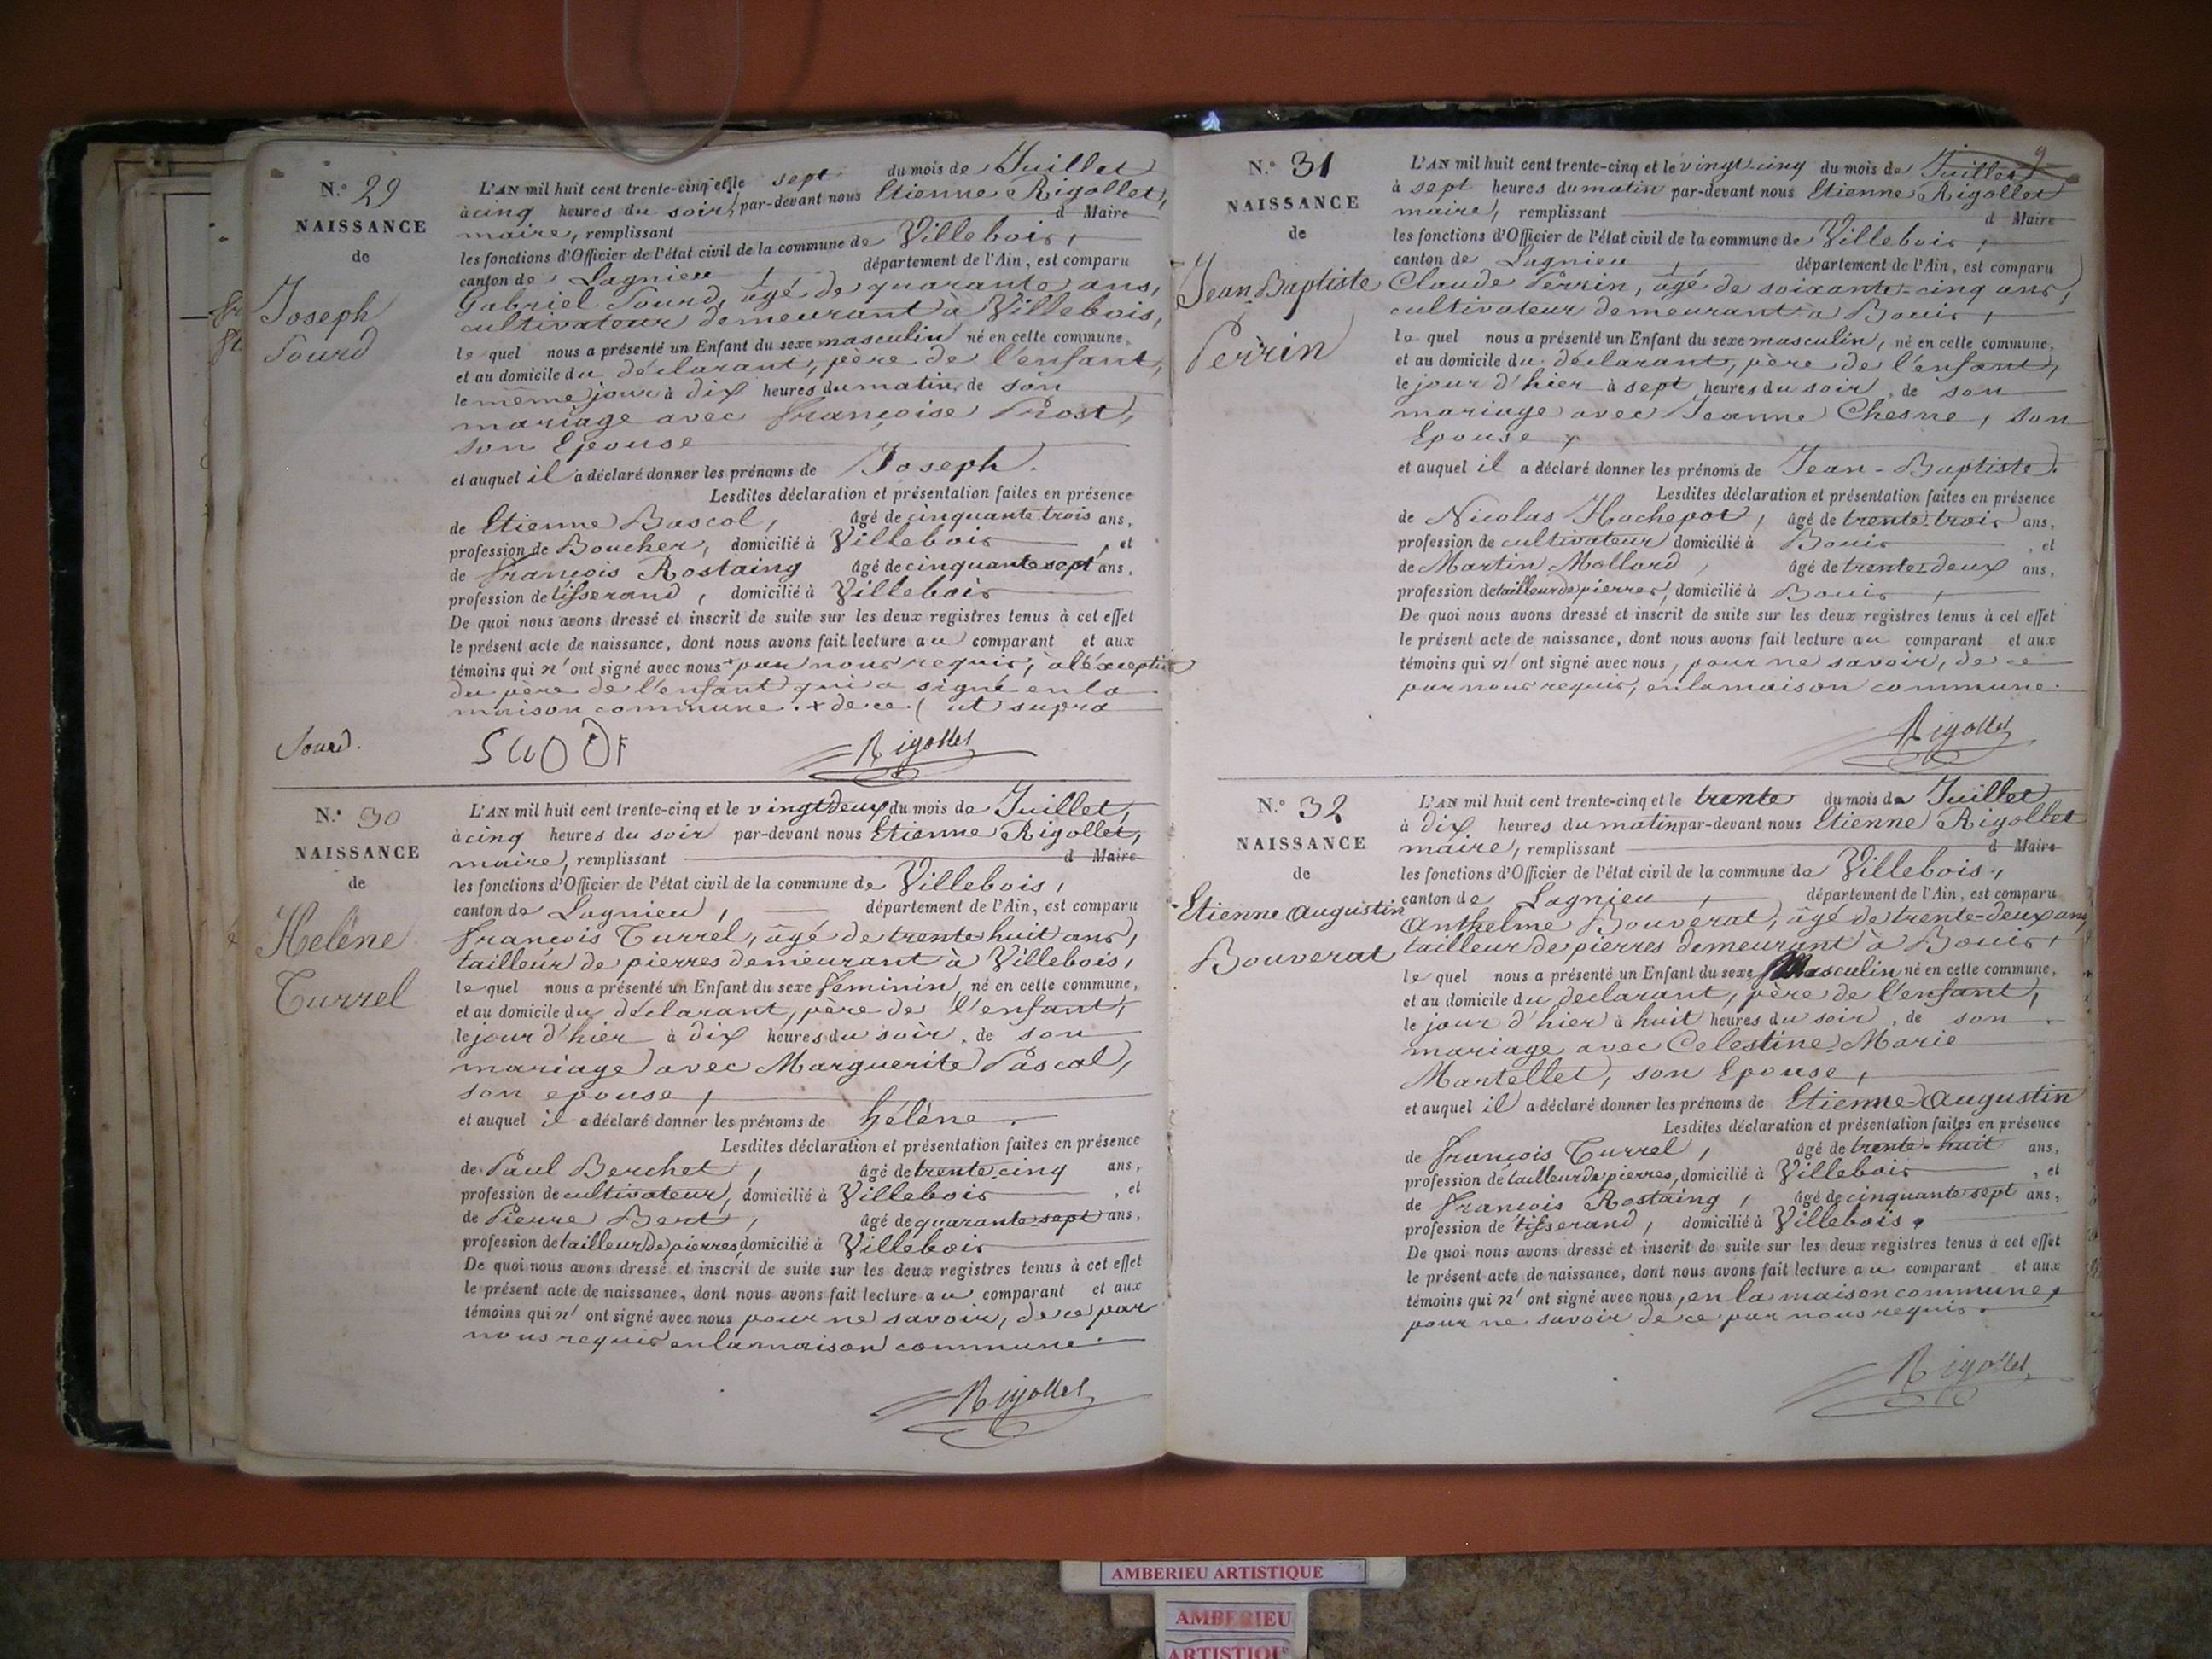 N.º 29
NAISSANCE
de
Joseph
Sourd
L'AN mil huit cent trente-cinq et le sept du mois de Juillet
à cinq heures du soir, par-devant nous Etienne Rigollet,
maire, remplissant d Maire
les fonctions d'Officier de l'état civil de la commune de Villebois,
canton de Lagnieu, département de l'Ain, est comparu
Gabriel Sourd, âgé de quarante ans,
cultivateur demeurant à Villebois,
le quel nous a présenté un Enfant du sexe masculin né en cette commune,
et au domicile du déclarant, père de l'enfant,
le même jour à dix heures du matin, de son
mariage avec françoise Prost,
son Epouse
et auquel il a déclaré donner les prénoms de Joseph.
Lesdites déclaration et présentation faites en présence
de Etienne Bascol, âgé de cinquante trois ans,
profession de Boucher, domicilié à Villebois, et
de françois Rostaing âgé de cinquante sept ans,
profession de tisserand, domicilié à Villebois
De quoi nous avons dressé et inscrit de suite sur les deux registres tenus à cet effet
le présent acte de naissance, dont nous avons fait lecture au comparant et aux
témoins qui n'ont signé avec nous x par nous requis, à l'éxception
du père de l'enfant qui a signé en la
maison commune. x de ce (ut supra
Sourd.
Rigollet
N.º 30
NAISSANCE
de
Helène
Turrel
L'AN mil huit cent trente-cinq et le vingt deux du mois de Juillet,
à cinq heures du soir par-devant nous Etienne Rigollet,
maire, remplissant d Maire
les fonctions d'Officier de l'état civil de la commune de Villebois,
canton de Lagnieu, département de l'Ain, est comparu
françois Turrel, âgé de trente huit ans,
tailleur de pierres demeurant à Villebois,
le quel nous a présenté un Enfant du sexe féminin, né en cette commune,
et au domicile du déclarant, père de l'enfant,
le jour d'hier à dix heures du soir, de son
mariage avec Marguerite Pascal,
son epouse,
et auquel il a déclaré donner les prénoms de hélène.
Lesdites déclaration et présentation faites en présence
de Paul Berchet, âgé de trente cinq ans,
profession de cultivateur, domicilié à Villebois, et
de Pierre Bert, âgé de quarante-sept ans,
profession de tailleur de pierres, domicilié à Villebois
De quoi nous avons dressé et inscrit de suite sur les deux registres tenus à cet effet
le présent acte de naissance, dont nous avons fait lecture au comparant et aux
témoins qui n'ont signé avec nous pour ne savoir, de ce par
nous requis en la maison commune.
Rigollet
9
N.º 31
NAISSANCE
de
Jean-Baptiste
Perrin
L'AN mil huit cent trente-cinq et le vingt-cinq du mois de Juillet
à sept heures du matin par-devant nous Etienne Rigollet
maire, remplissant d Maire
les fonctions d'Officier de l'état civil de la commune de Villebois,
canton de Lagnieu, département de l'Ain, est comparu
Claude Perrin, âgé de soixante-cinq ans,
cultivateur demeurant à Bouis,
le quel nous a présenté un Enfant du sexe masculin, né en cette commune,
et au domicile du déclarant, père de l'enfant,
le jour d'hier à sept heures du soir, de son
mariage avec Jeanne Chesne, son
Epouse,
et auquel il a déclaré donner les prénoms de Jean-Baptiste.
Lesdites déclaration et présentation faites en présence
de Nicolas Hochepot, âgé de trente-trois ans,
profession de cultivateur domicilié à Bouis, et
de Martin Mollard, âgé de trente-deux ans,
profession de tailleur de pierres, domicilié à Bouis,
De quoi nous avons dressé et inscrit de suite sur les deux registres tenus à cet effet
le présent acte de naissance, dont nous avons fait lecture au comparant et aux
témoins qui n'ont signé avec nous, pour ne savoir, de ce
par nous requis, en la maison commune.
Rigollet
N.º 32
NAISSANCE
de
Etienne Augustin
Bouverat
L'AN mil huit cent trente-cinq et le trente du mois de Juillet
à dix heures du matin par-devant nous Etienne Rigollet
maire, remplissant d Maire
les fonctions d'Officier de l'état civil de la commune de Villebois,
canton de Lagnieu, département de l'Ain, est comparu
Anthelme Bouverat, âgé de trente-deux ans,
tailleur de pierres demeurant à Bouis,
le quel nous a présenté un Enfant du sexe Masculin né en cette commune,
et au domicile du declarant, père de l'enfant,
le jour d'hier à huit heures du soir, de son
mariage avec Celestine-Marie
Martellet, son Epouse,
et auquel il a déclaré donner les prénoms de Etienne-Augustin
Lesdites déclaration et présentation faites en présence
de françois Turrel, âgé de trente-huit ans,
profession de tailleur de pierres, domicilié à Villebois, et
de françois Rostaing, âgé de cinquante sept ans,
profession de tisserand, domicilié à Villebois.
De quoi nous avons dressé et inscrit de suite sur les deux registres tenus à cet effet
le présent acte de naissance, dont nous avons fait lecture au comparant et aux
témoins qui n'ont signé avec nous, en la maison commune,
pour ne savoir de ce par nous requis.
Rigollet
AMBERIEU ARTISTIQUE
AMBERIEU
ARTISTIQUE